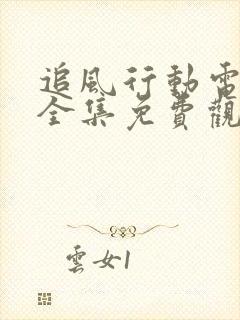 追風行動電
全集免費觀
雲女1